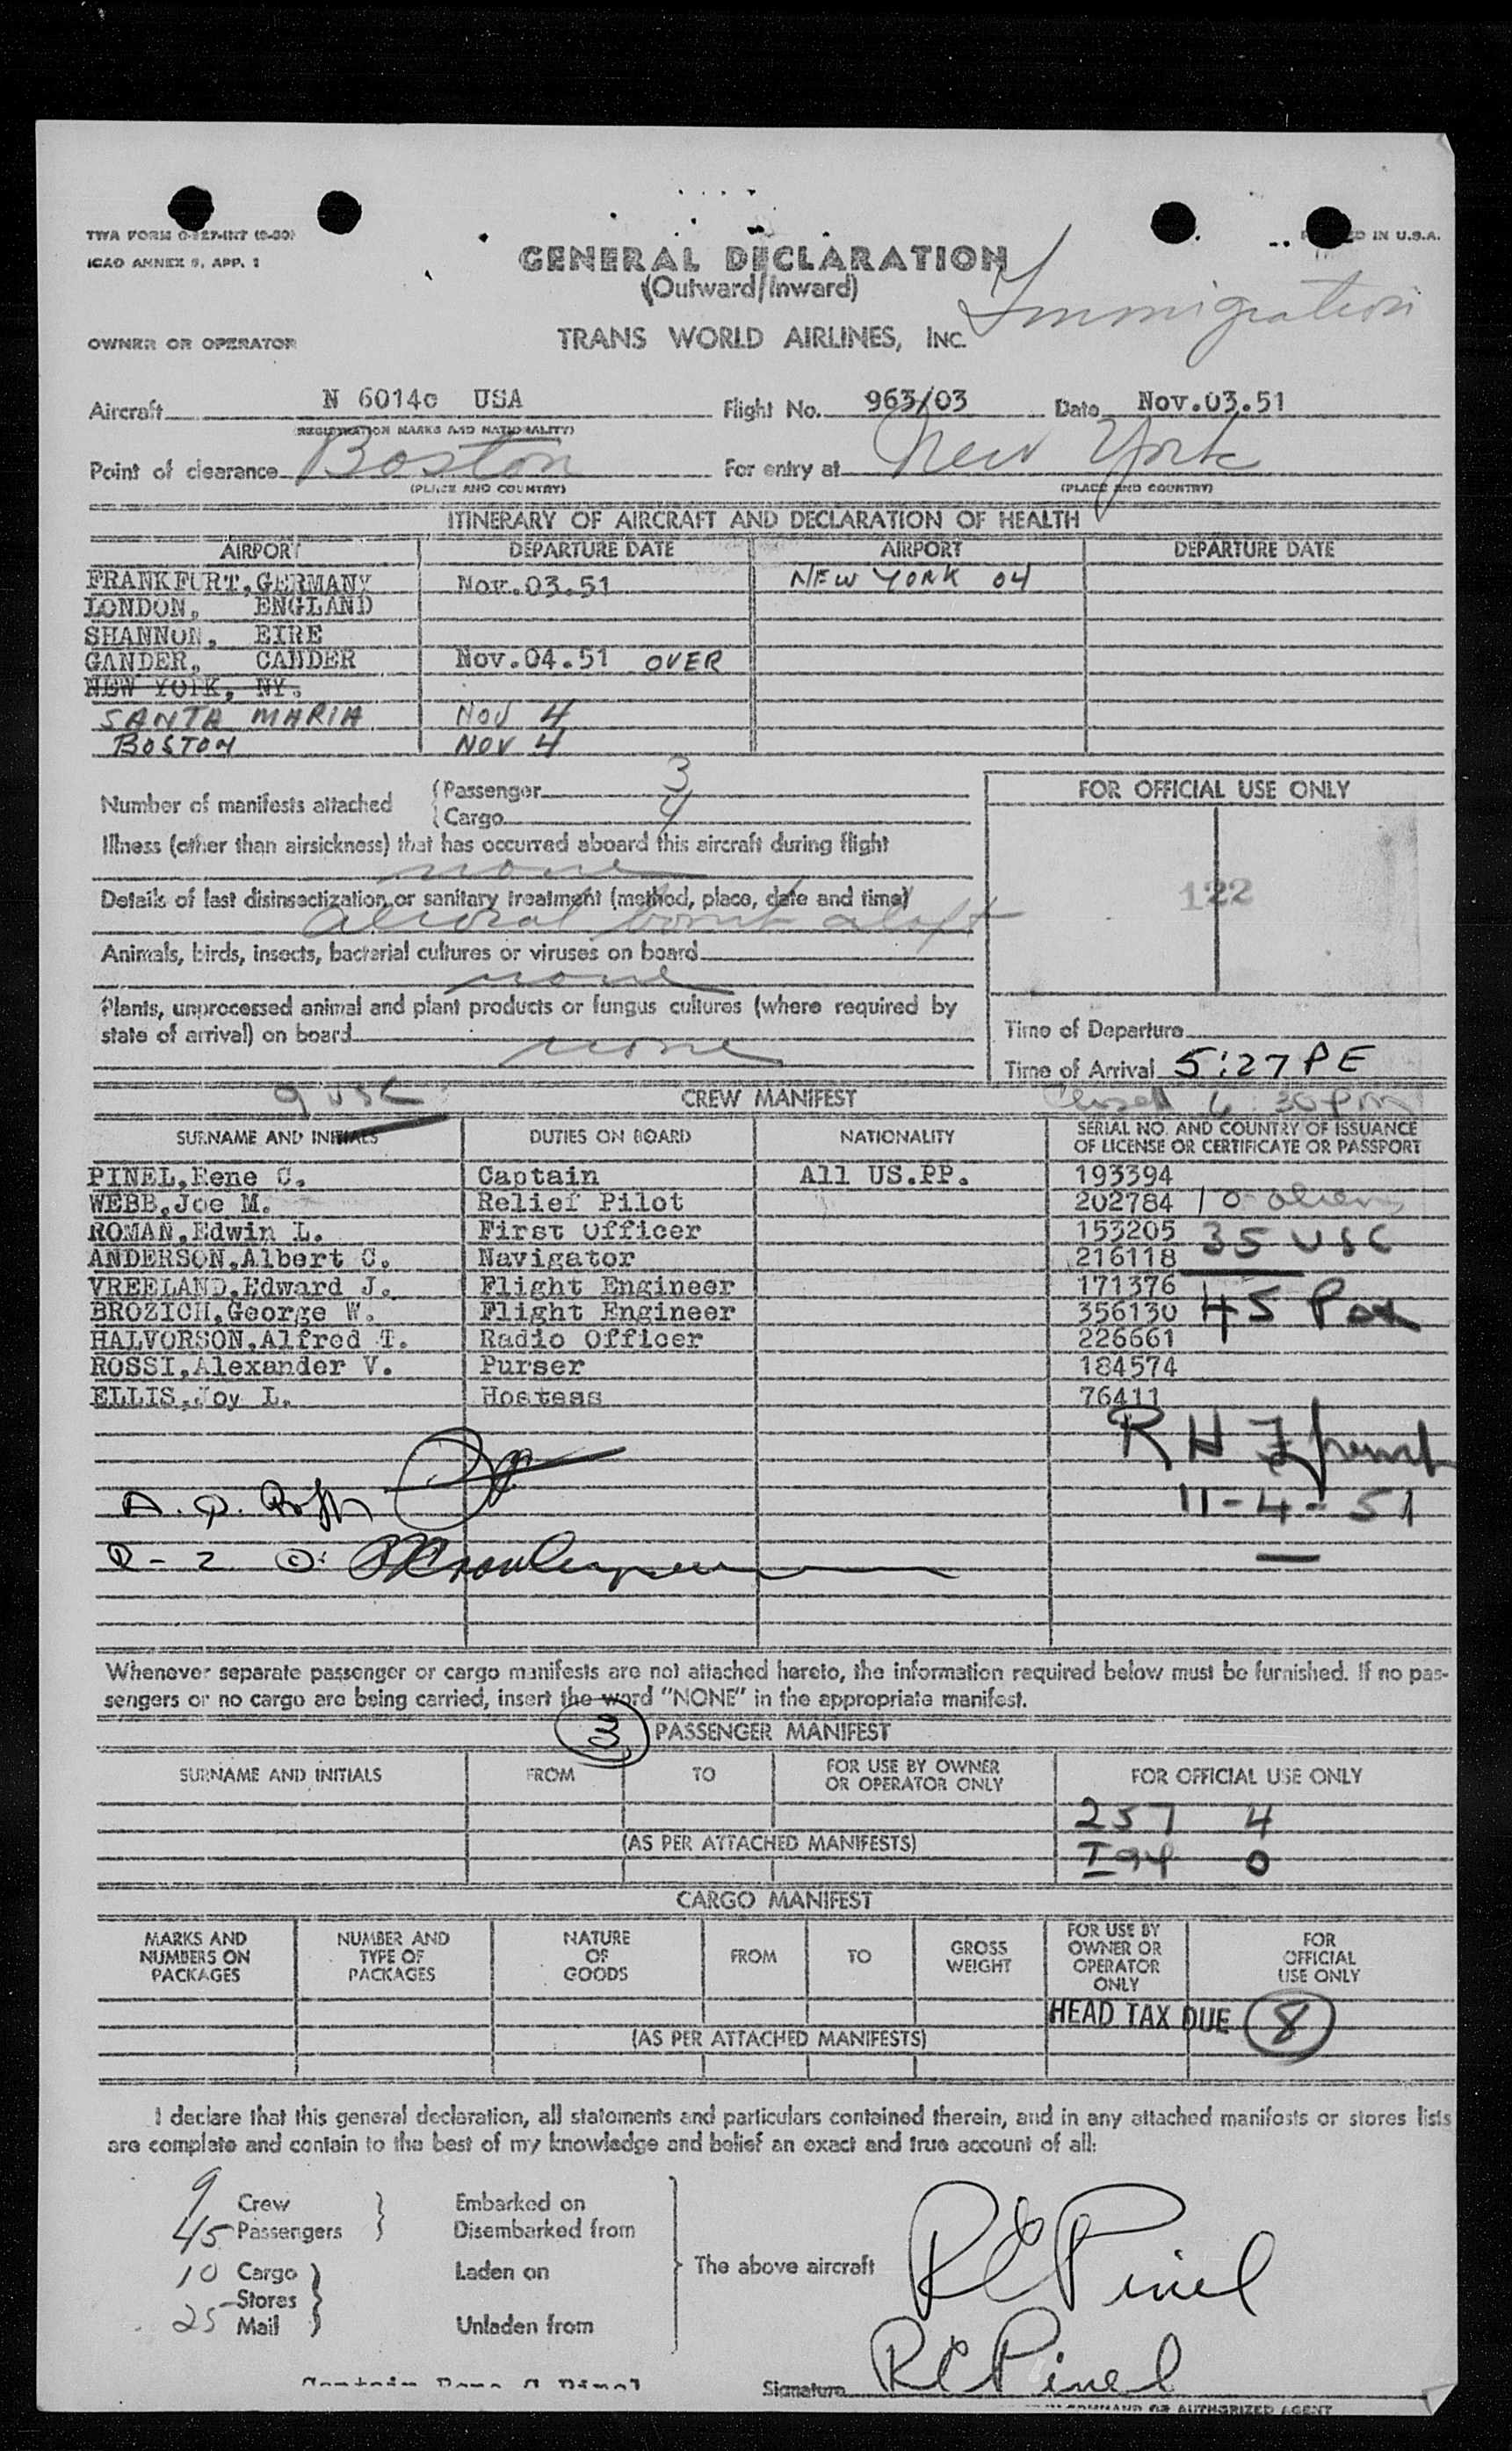 TWA FORM
ICAO ANNEX 9, APP. 1
IN U.S.A.
GENERAL DECLARATION
(Outward/Inward)
Immigration
OWNER OR OPERATOR
TRANS WORLD AIRLINES, INC.
Aircraft N 6014c USA Flight No. 963/03 Date Nov.03.51
(REGISTRATION MARKS AND NATIONALITY)
Point of clearance Boston For entry at New York
(PLACE AND COUNTRY) (PLACE AND COUNTRY)
ITINERARY OF AIRCRAFT AND DECLARATION OF HEALTH
AIRPORT DEPARTURE DATE AIRPORT DEPARTURE DATE
FRANKFURT, GERMANY Nov.03.51 NEW YORK 04
LONDON, ENGLAND
SHANNON, EIRE
GANDER, CANDER Nov.04.51 OVER
NEW YORK, NY.
SANTA MARIA NOV 4
BOSTON NOV 4
Number of manifests attached
Passenger 3
Cargo 4
FOR OFFICIAL USE ONLY
Illness (other than airsickness) that has occurred aboard this aircraft during flight
none
Details of last disinsectization or sanitary treatment (method, place, date and time)
bomb aloft
122
Animals, birds, insects, bacterial cultures or viruses on board
none
Plants, unprocessed animal and plant products or fungus cultures (where required by
state of arrival) on board
none
Time of Departure
Time of Arrival 5:27 PE
9 USC CREW MANIFEST Closed 6:30 pm
SURNAME AND INITIALS DUTIES ON BOARD NATIONALITY SERIAL NO. AND COUNTRY OF ISSUANCE
OF LICENSE OR CERTIFICATE OR PASSPORT
PINEL, Rene C. Captain All US.PP. 193394
WEBB, Joe M. Relief Pilot 202784 10 aliens
ROMAN, Edwin L. First Officer 153205 35 USC
ANDERSON, Albert C. Navigator 216118
VREELAND, Edward J. Flight Engineer 171376
BROZICH, George W. Flight Engineer 356130 45 Pax
HALVORSON, Alfred T. Radio Officer 226661
ROSSI, Alexander V. Purser 184574
ELLIS, Joy L. Hostess 76411
R H
11-4-51
Whenever separate passenger or cargo manifests are not attached hereto, the information required below must be furnished. If no pas-
sengers or no cargo are being carried, insert the word "NONE" in the appropriate manifest.
3 PASSENGER MANIFEST
SURNAME AND INITIALS FROM TO FOR USE BY OWNER
OR OPERATOR ONLY FOR OFFICIAL USE ONLY
257 4
(AS PER ATTACHED MANIFESTS)
I94 0
CARGO MANIFEST
MARKS AND
NUMBERS ON
PACKAGES
NUMBER AND
TYPE OF
PACKAGES
NATURE
OF
GOODS
FROM
TO
GROSS
WEIGHT
FOR USE BY
OWNER OR
OPERATOR
ONLY
FOR
OFFICIAL
USE ONLY
HEAD TAX DUE 8
(AS PER ATTACHED MANIFESTS)
I declare that this general declaration, all statements and particulars contained therein, and in any attached manifests or stores lists
are complete and contain to the best of my knowledge and belief an exact and true account of all:
9 Crew Embarked on
45 Passengers Disembarked from
10 Cargo Laden on The above aircraft R C Pinel
Stores
25 Mail Unladen from
Captain Rene C Pinel Signature R C Pinel
COMMAND OR AUTHORIZED AGENT